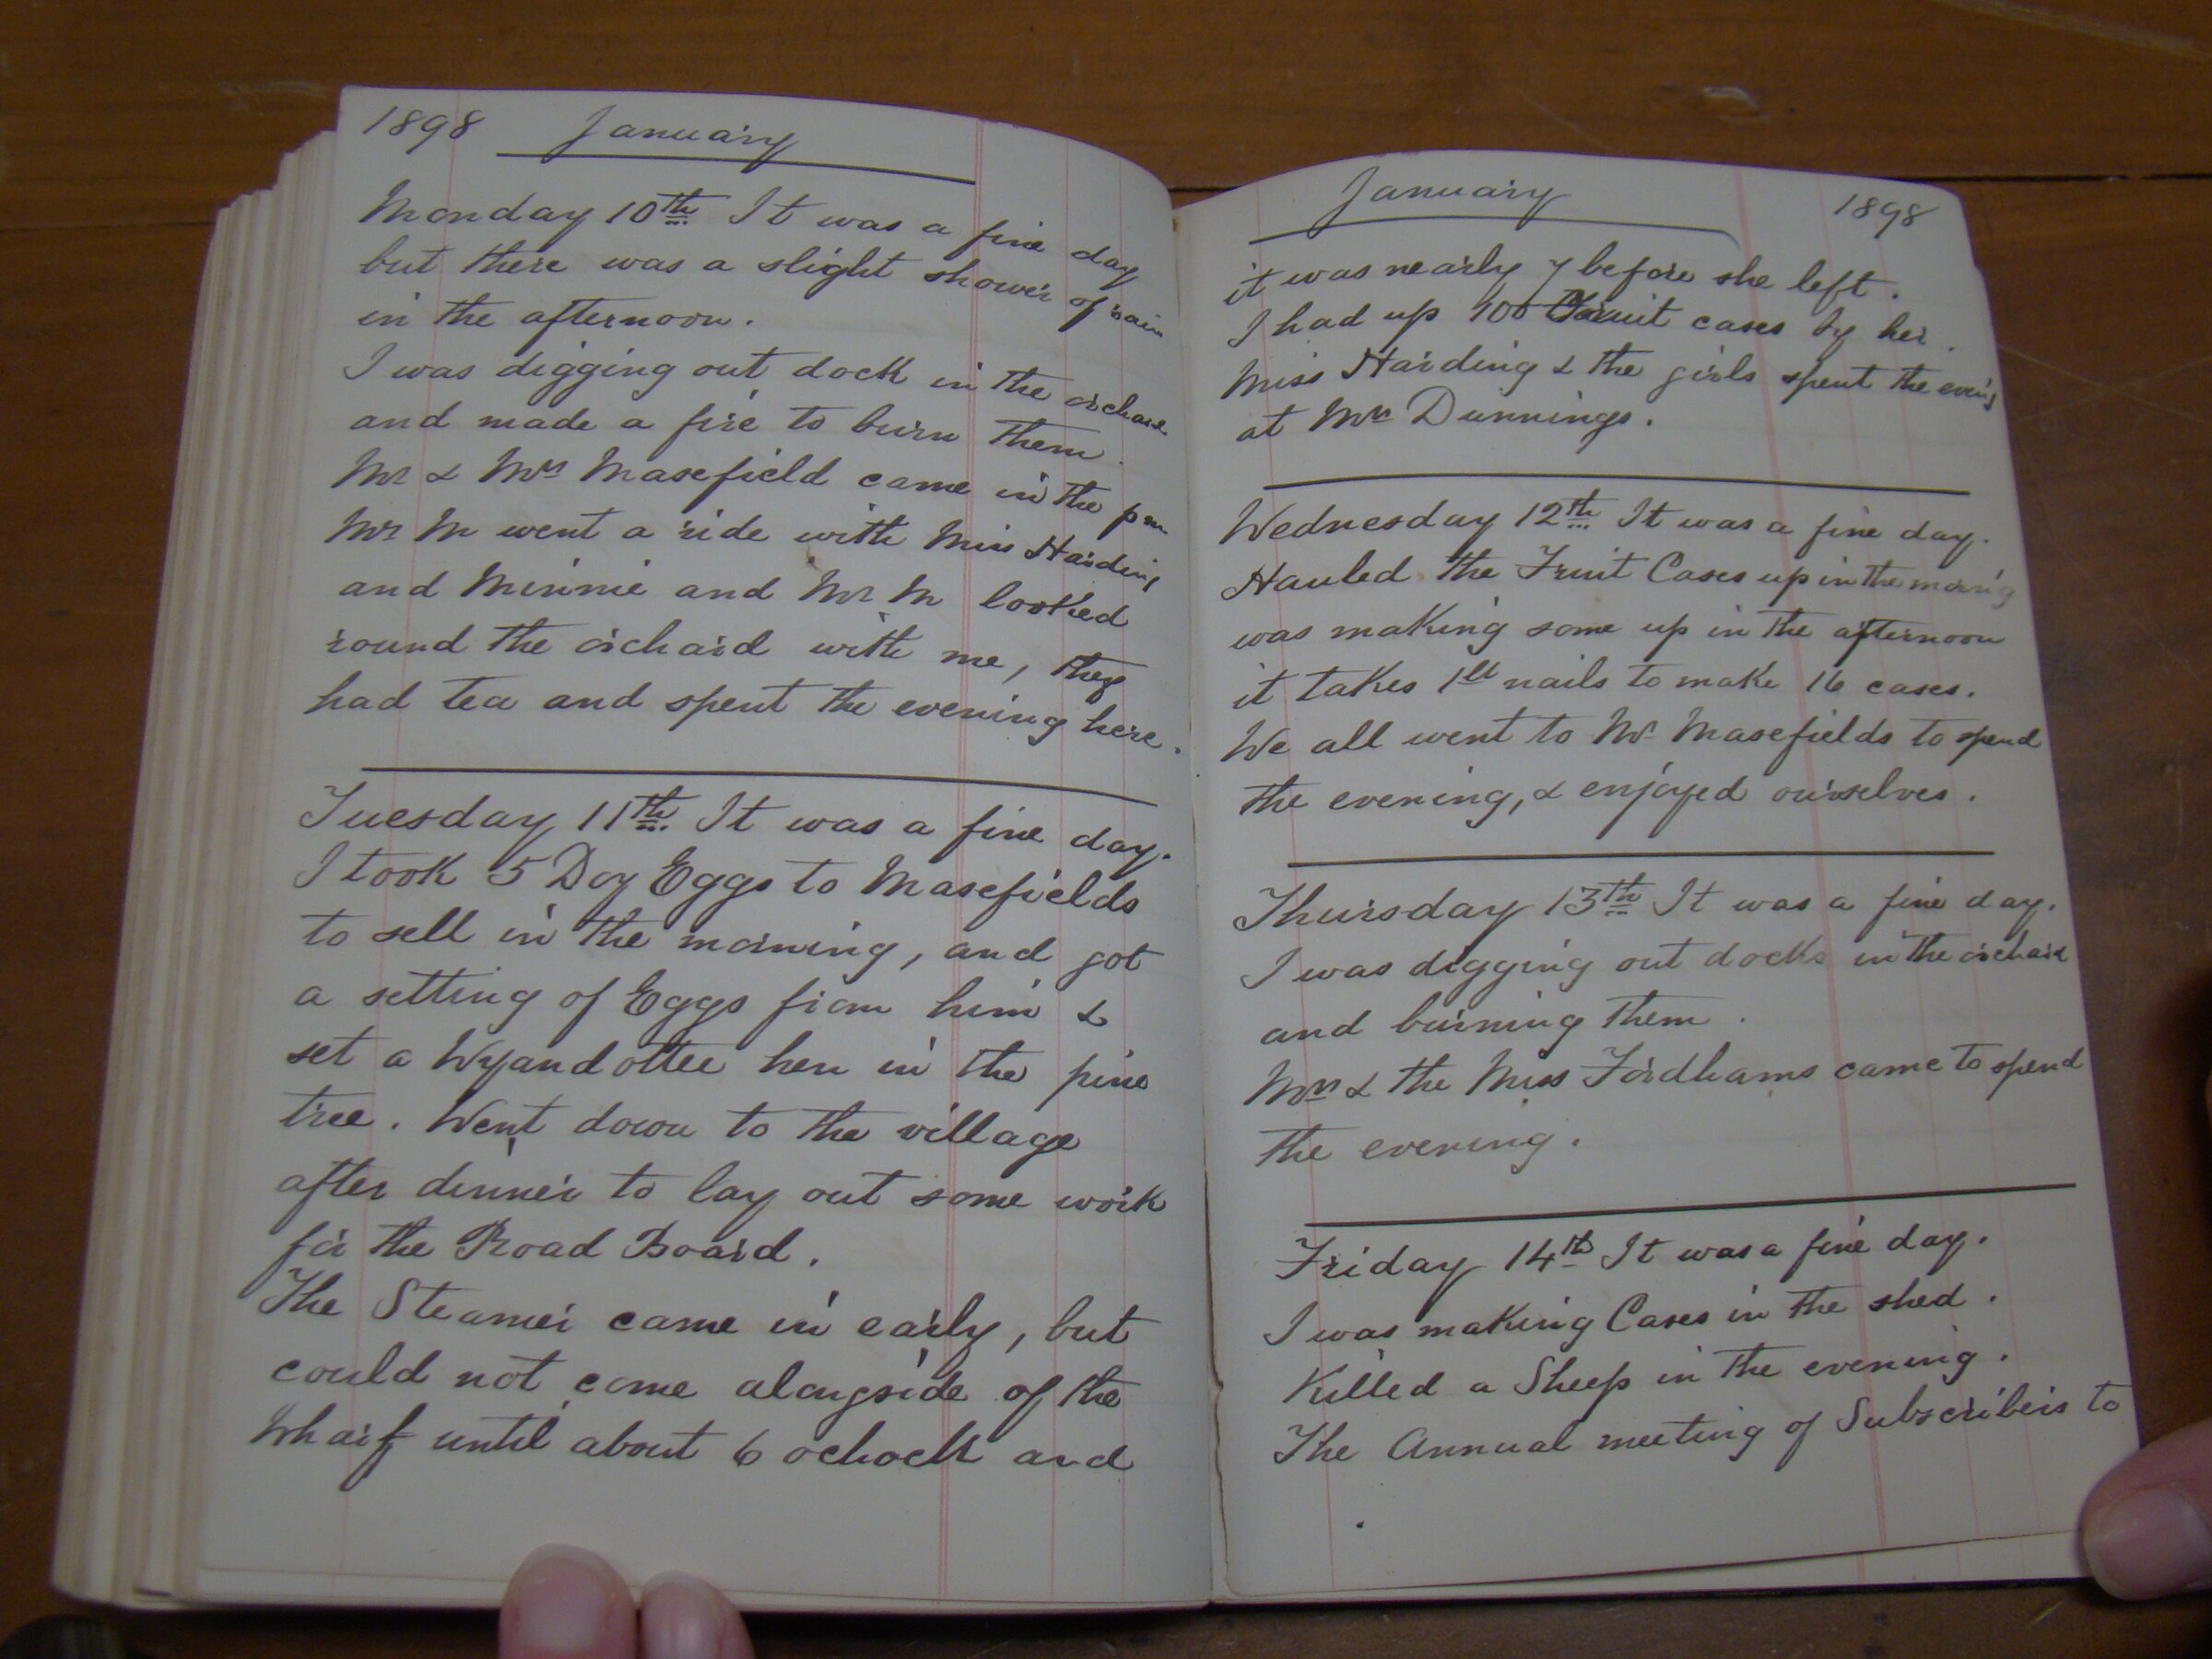 1898 January
Monday 10th It was a fine day
but there was a slight shower of rain
in the afternoon.
I was digging out dock in the orchard
and made a fire to burn them.
Mr & Mrs Masefield came in the pm
Mrs M went a ride with Miss Harding
and Minnie and Mr M looked
round the orchard with me, they
had tea and spent the evening here.
Tuesday 11th It was a fine day.
I took 5 Doz Eggs to Masefields
to sell in the morning, and got
a setting of Eggs from him &
set a Wyandottee hen in the pine
tree. Went down to the village
after dinner to lay out some work
for the Road Board.
The Steamer came in early, but
could not come alongside of the
Wharf until about 6 oclock and
January 1898
it was nearly 7 before she left.
I had up 100 Fruit cases by her.
Miss Harding & the girls spent the eveng
at Mrs Dunnings.
Wednesday 12th It was a fine day.
Hauled the Fruit Cases up in the morng
was making some up in the afternoon
it takes 1lb nails to make 16 cases.
We all went to Mr Masefields to spend
the evening, & enjoyed ourselves.
Thursday 13th It was a fine day.
I was digging out docks in the orchard
and burning them.
Mrs & the Miss Fordhams came to spend
the evening.
Friday 14th It was a fine day.
I was making Cases in the shed.
Killed a Sheep in the evening.
The Annual meeting of Subscribers to